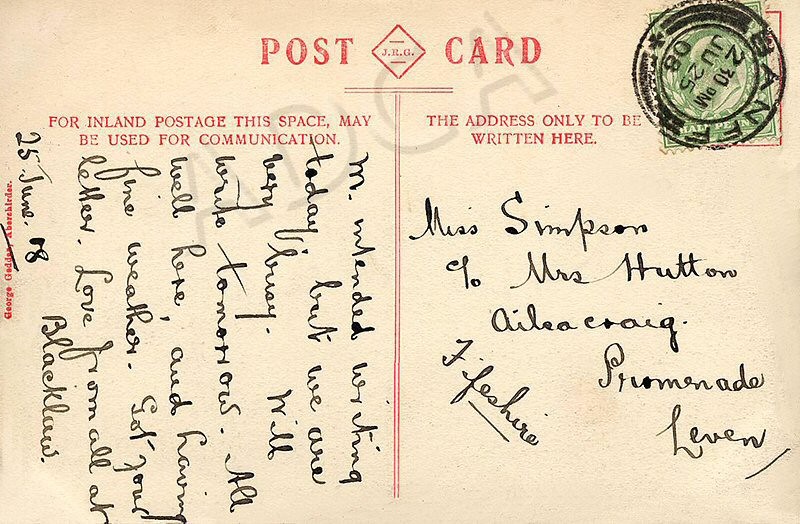 POST J.R.G. CARD
FOR INLAND POSTAGE THIS SPACE, MAY
BE USED FOR COMMUNICATION.
THE ADDRESS ONLY TO BE
WRITTEN HERE.
BANFF
2 30 PM
JU 25
08
M. intended writing
today, but we are
very busy. Will
write tomorrow. All
well here, and having
fine weather. Got your
letter. Love from all at
Blacklaw.
25 June. 08
Miss Simpson
c/o Mrs Hutton
Ailsacraig.
Promenade
Leven
Fifeshire
George Geddes, Aberchirder.
ADCA